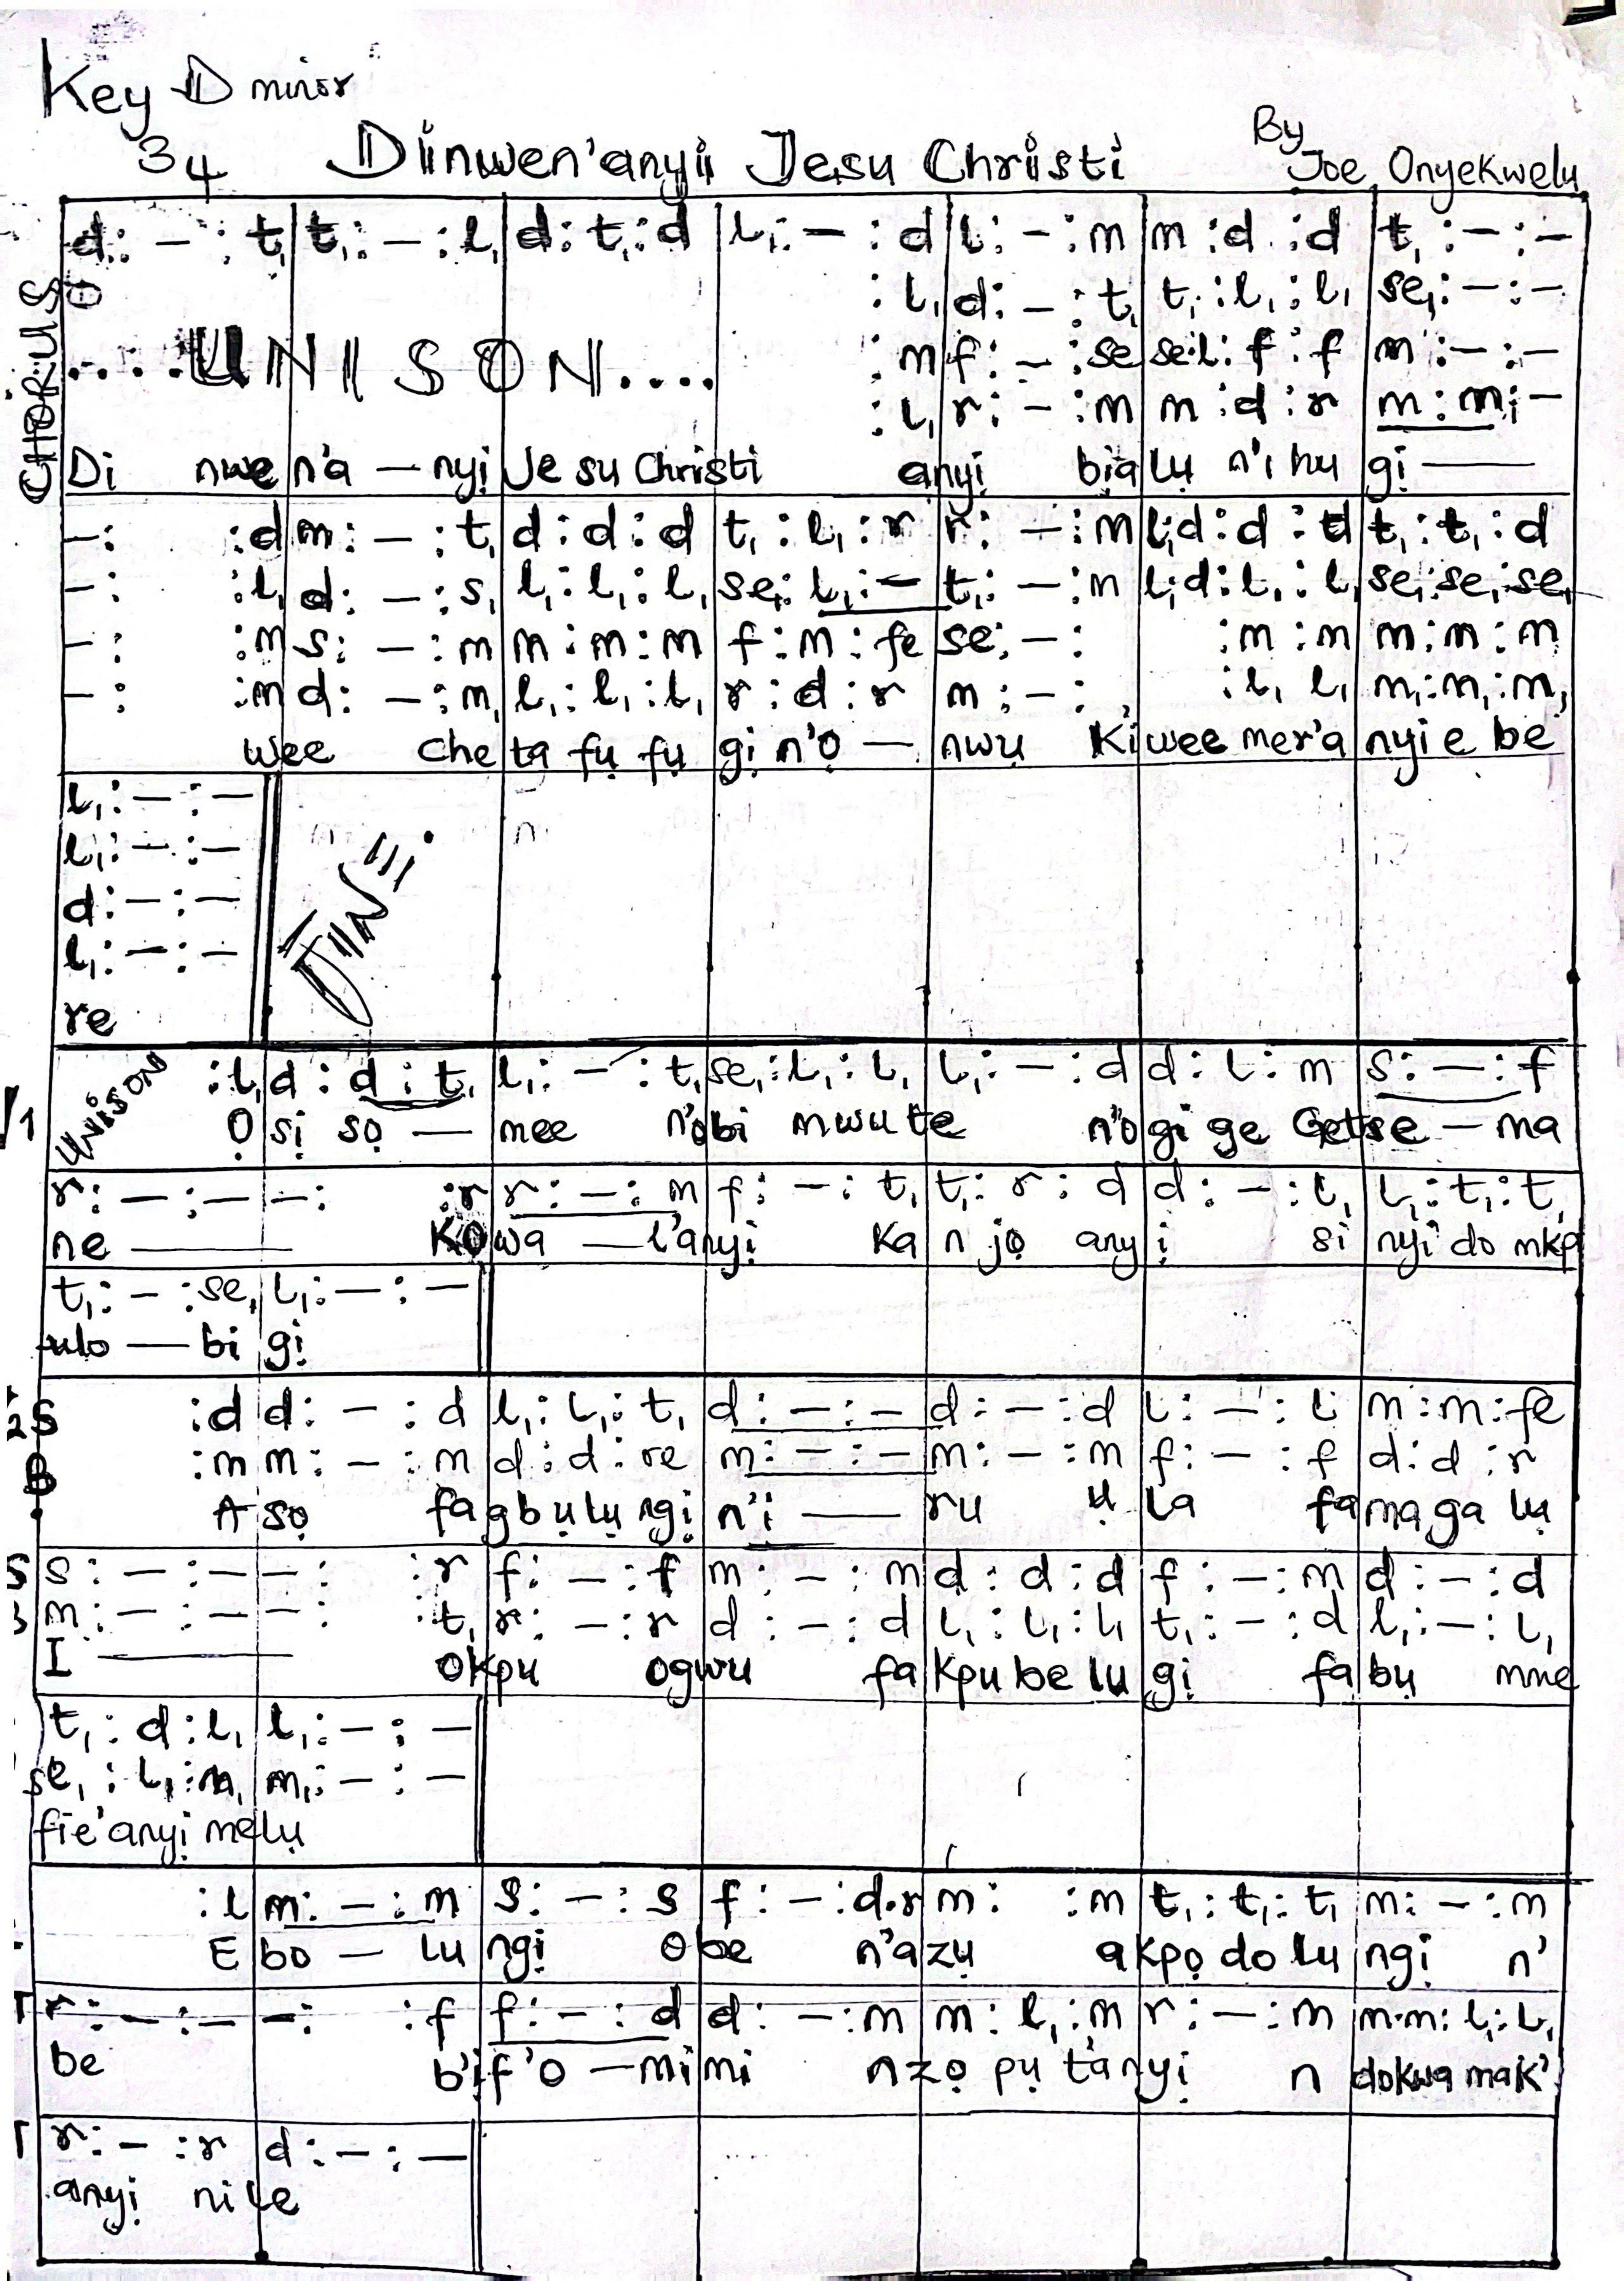 Key D minor
34 Dinwen'anyi Jesu Christi By Joe Onyekwelu
CHORUS
d: – : t₁ | t₁: – : l₁ | d: t₁: d | l₁: – : d | l: – : m | m : d : d | t₁ : – : –
: l₁ | d: – : t₁ | t₁ : l₁ : l₁ | se₁: – : –
....UNISON.... : m | f: – : se | se:l: f : f | m : – : –
: l₁ | r: – : m | m : d : r | m : m₁: –
Di nwe n'a – nyị Je su Christi anyị bịa lụ n'i hu gị —
–: : d | m: – : t₁ | d : d : d | t₁ : l₁ : r | r: – : m | l₁d : d : d | t₁ : t₁ : d
– : : l₁ | d: – : s₁ | l₁ : l₁ : l₁ | se₁: l₁: – | t₁: – : m | l₁d : l₁ : l₁ | se₁: se₁: se₁
– : : m | s: – : m | m : m : m | f : m : fe | se: – : | : m : m | m : m : m
– : : m | d: – : m₁ | l₁ : l₁ : l₁ | r : d : r | m : – : | : l₁ l₁ | m₁: m₁: m₁
wee che ta fụ fụ gị n'ọ — nwụ Ki wee mer'a nyi e be
l₁: – : –
l₁: – : –
d: – : –
l₁: – : –
FINE
re
V1 UNISON : l₁ | d : d : t₁ | l₁: – : t₁ | se₁: l₁ : l₁ | l₁: – : d | d : l : m | s: – : f
Ọ sị sọ — mee n'obi mwu te n'o gi ge Getse – ma
r: – : – | –: : r | r: – : m | f: – : t₁ | t₁: r : d | d: – : l₁ | l₁: t₁: t₁
ne — Kọwa — l'anyị Ka n jọ anyị si nyi do mkp
t₁: – : se₁ | l₁: – : –
ulo — bi gị
2 S : d | d: – : d | l₁: l₁: t₁ | d: – : – | d: – : d | l: – : l | m : m : fe
B : m | m: – : m | d : d : re | m: – : – | m: – : m | f: – : f | d : d : r
A sọ fa gbụ lụ ngị n'i — ru ụ la fa ma ga lụ
S s : – : – | – : : r | f: – : f | m: – : m | d : d : d | f : – : m | d : – : d
m: – : – | – : : t₁ | r: – : r | d : – : d | l₁ : l₁ : l₁ | t₁: – : d | l₁: – : l₁
I — Okpu ogwu fa kpu be lu gị fa bụ mme
t₁ : d : l₁ | l₁: – : –
se₁ : l₁: m₁ | m₁: – : –
fie'anyị melụ
: l | m: – : m | s: – : s | f: – : d.r | m: : m | t₁ : t₁ : t₁ | m: – : m
E bo — lu ngị Obe n'a zụ a kpọ do lu ngị n'
T r: – : – | –: : f | f: – : d | d: – : m | m : l₁ : m | r : – : m | m.m: l₁: l₁
be b'if'o – mi mi n zọ pụ t'anyị n dokwa mak'
T r: – : r | d: – : –
anyị ni le